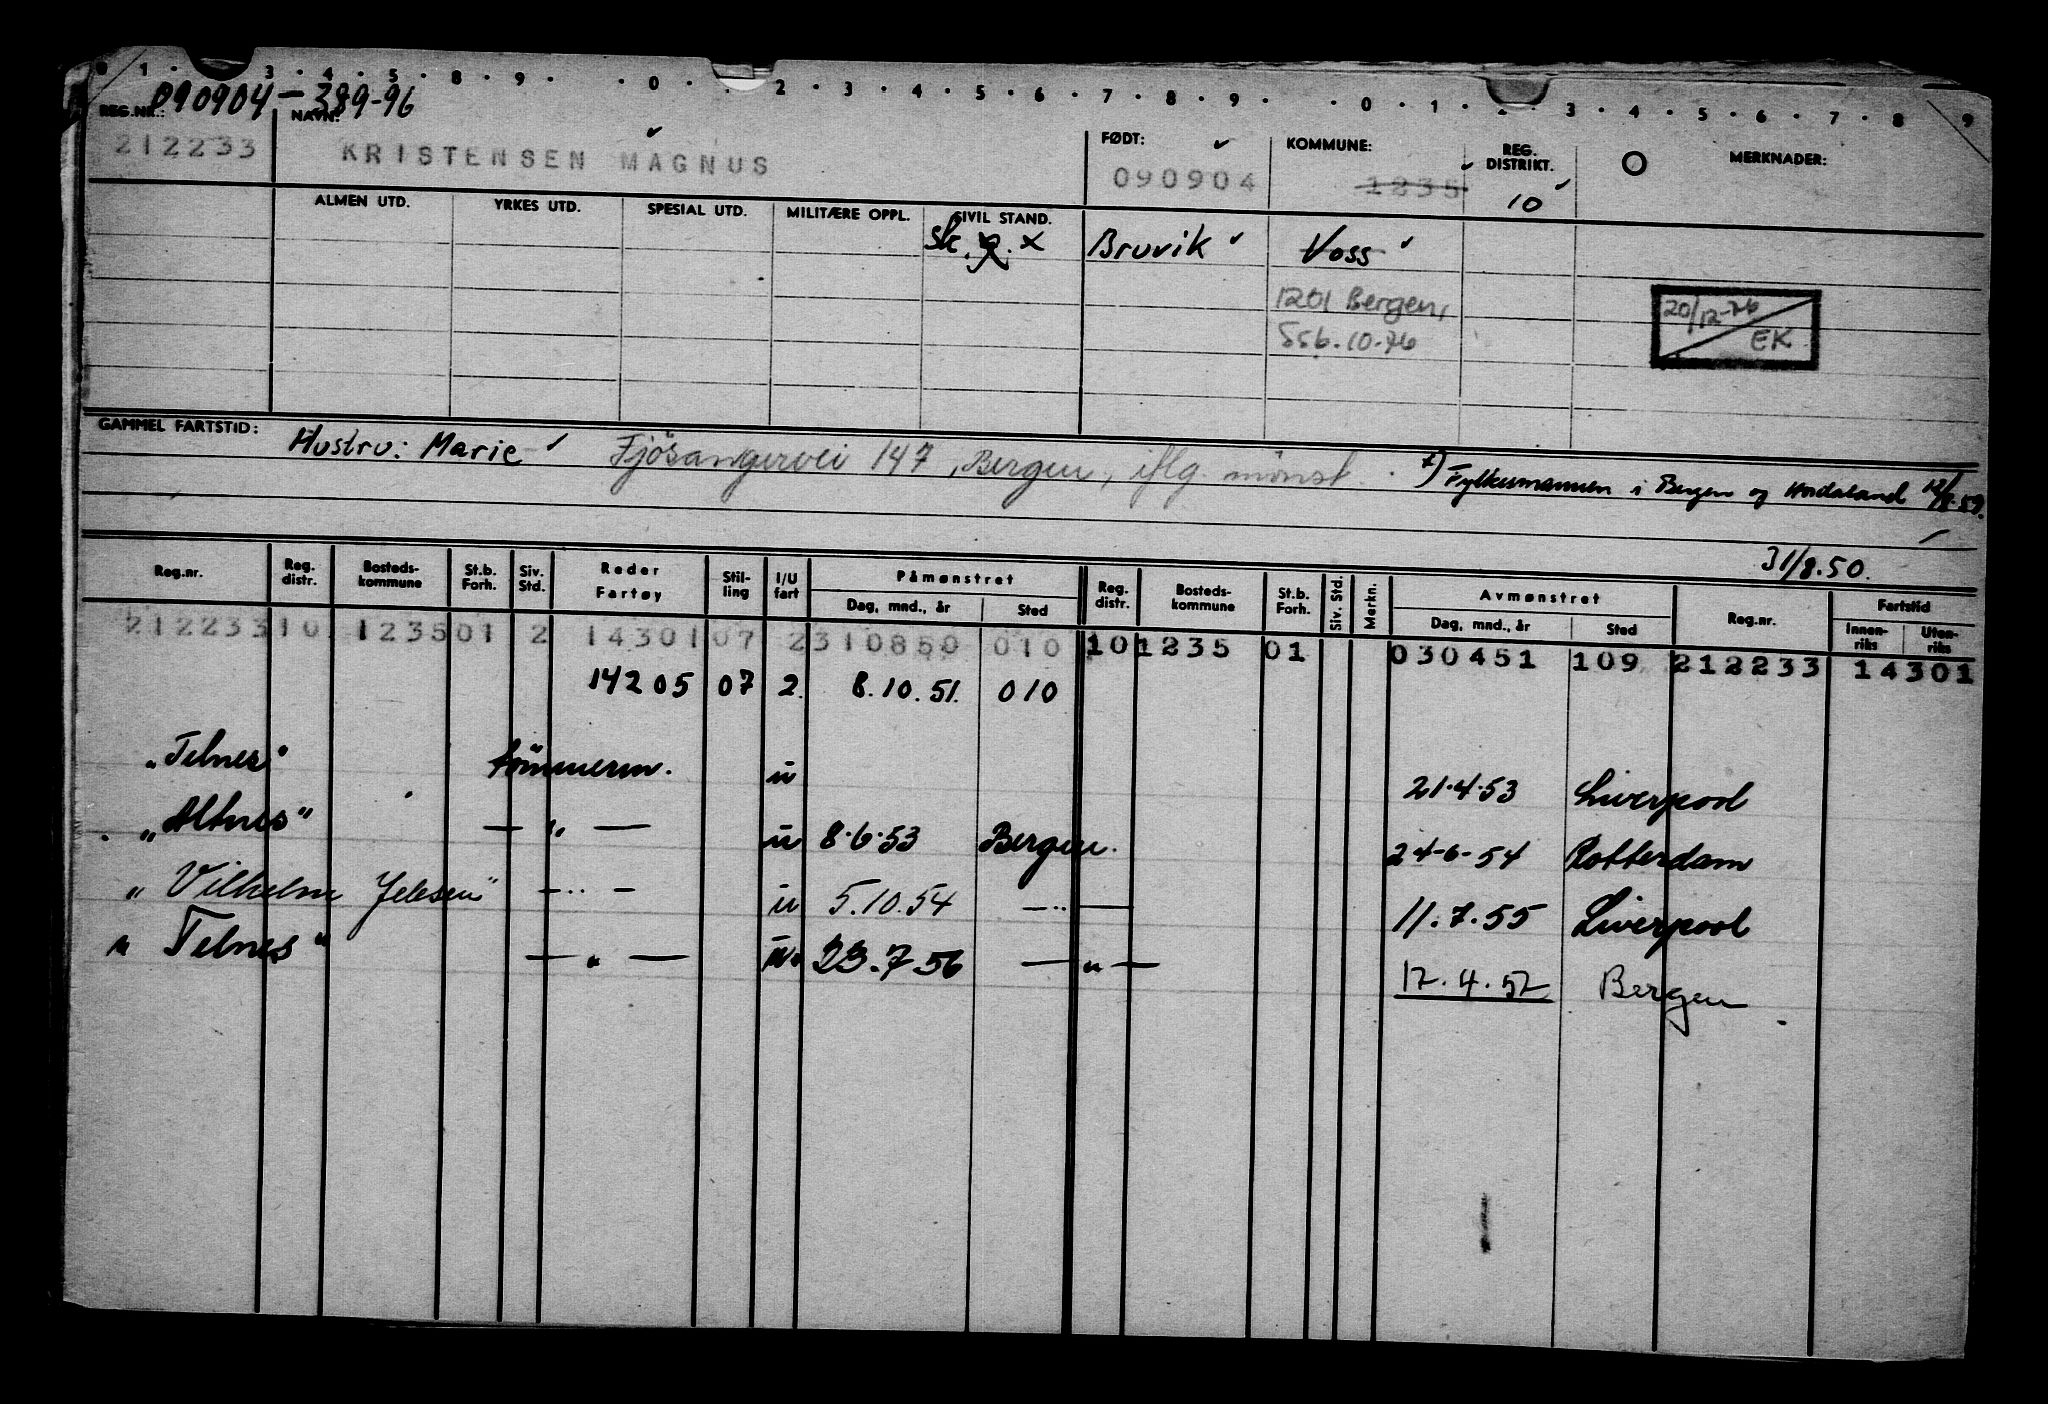 0 1 · 3 · 4 · 5 · 8 · 9 · · 0 · · 2 · 3 · 4 · 5 · 6 · 7 · 8 · 9 · · 0 · 1 · 2 · 3 · 4 · 5 · 6 · 7 · 8 · 9
090904 - 389-96
REG.NR.: NAVN: FØDT: KOMMUNE: REG. DISTRIKT. O MERKNADER:
212233 KRISTENSEN MAGNUS 090904 1235 10
ALMEN UTD. YRKES UTD. SPESIAL UTD. MILITÆRE OPPL. SIVIL STAND.
Sk. g. x Bruvik Voss
1201 Bergen,
556.10.76
20/12-76
EK
GAMMEL FARTSTID: Hustru: Marie Fjösangervei 147, Bergen, iflg. mönst. x) Fylkesmannen i Bergen og Hordaland
31/8.50.
Reg.nr. Reg. distr. Bosteds-kommune St.b. Forh. Siv. Std. Reder Fartøy Stil-ling I/U fart Påmønstret Dag, mnd., år Sted Reg. distr. Bosteds-kommune St.b. Forh. Siv. Std. Merkn. Avmønstret Dag, mnd., år Sted Reg.nr. Fartstid Innen-riks Uten-riks
212233 10 1235 01 2 14301 07 2 310850 010 10 1235 01 030451 109 212233 14301
14205 07 2 8.10.51. 010
"Telnes" tömmerm. u 21.4.53 Liverpool
"Altnes" — " — u 8.6.53 Bergen. 24-6-54 Rotterdam
"Vilhelm Jebsen" — " — u 5.10.54 — " — 11.7.55 Liverpool
"Telnes" — " — u. 23.7.56 — " — 12.4.57 Bergen